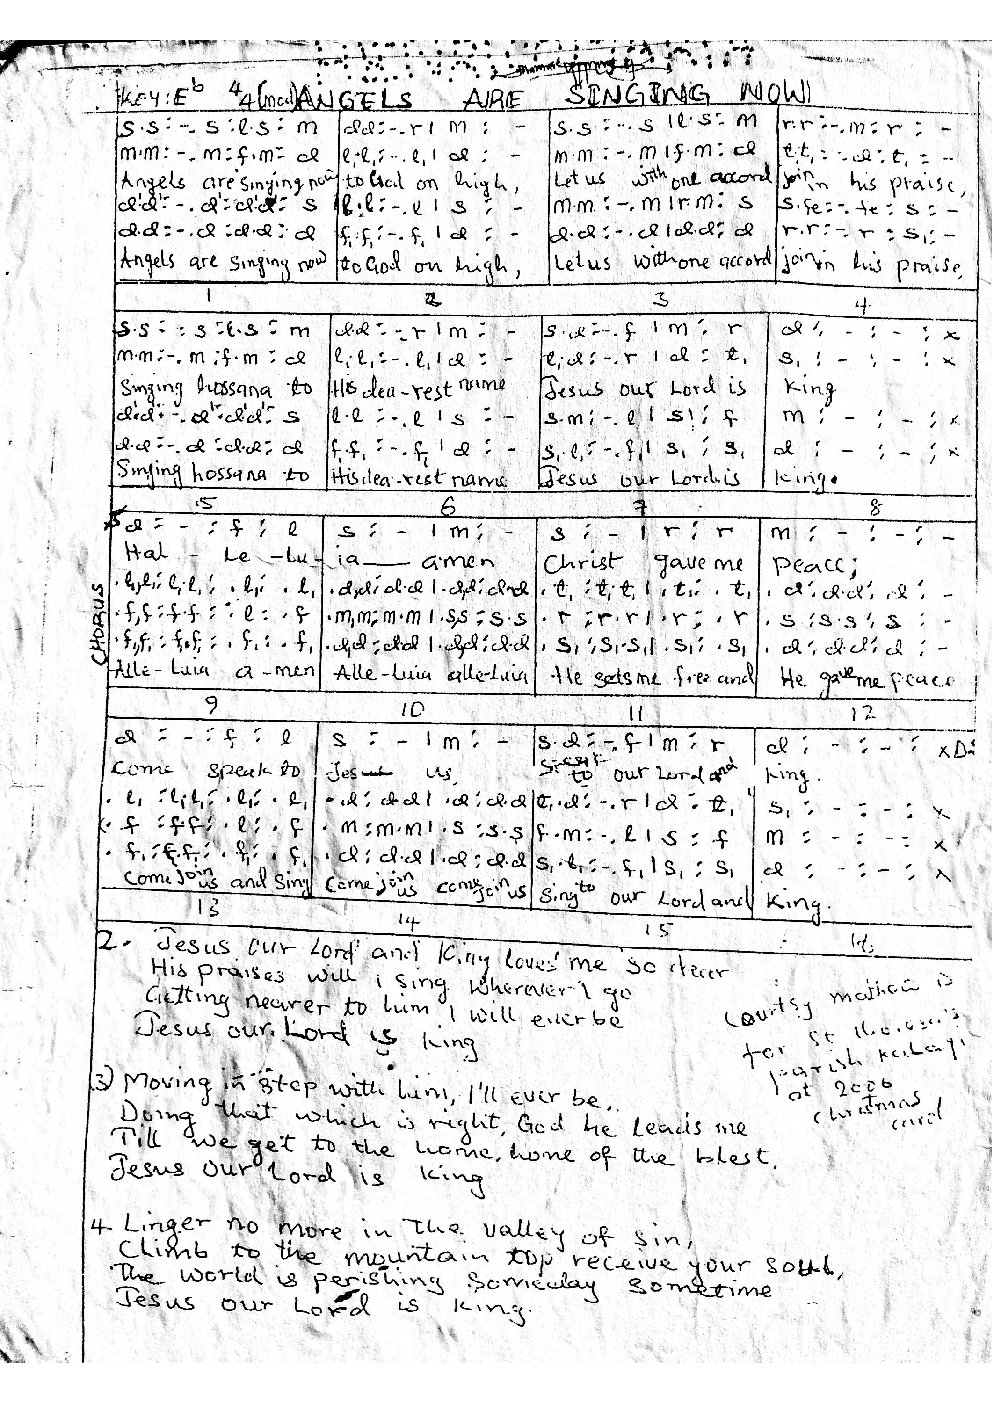 KEY: Eb 4/4 (mod) ANGELS ARE SINGING NOW
s.s :-. s :l.s : m | d.d :-. r | m : - | s.s :-. s | l.s : m | r.r :-. m : r : -
m.m :-. m :f.m : d | l₁.l₁ :-. l₁ | d : - | m.m :-. m | f.m : d | t₁.t₁ :-. d : t₁ : -
Angels are singing now | to God on high, | Let us with one accord | join in his praise,
d'.d' :-. d' :d'.d' : s | l.l :-. l | s : - | m.m :-. m | r.m : s | s.fe :-. fe : s : -
d.d :-. d :d.d : d | f₁.f₁ :-. f₁ | d : - | d.d :-. d | d.d : d | r.r :-. r : s₁ : -
Angels are singing now | to God on high, | Let us with one accord | join in his praise,
1 2 3 4
s.s :-. s :l.s : m | d.d :-. r | m : - | s.d :-. f | m : r | d : - : - : x
m.m :-. m :f.m : d | l₁.l₁ :-. l₁ | d : - | l₁.d :-. r | d : t₁ | s₁ : - : - : x
Singing hossana to | His dea-rest name | Jesus our Lord is | King
d'.d' :-. d' :d'.d' : s | l.l :-. l | s : - | s.m :-. l | s : f | m : - : - : x
d.d :-. d :d.d : d | f₁.f₁ :-. f₁ | d : - | s₁.l₁ :-. f₁ | s₁ : s₁ | d : - : - : x
Singing hossana to | His dea-rest name | Jesus our Lord is | King.
5 6 7 8
CHORUS
d : - : f : l | s : - | m : - | s : - | r : r | m : - : - : -
Hal - le - lu - ia — amen | Christ gave me | peace;
. l₁,l₁ : l₁.l₁ : . l₁ : . l₁ | . d,d : d.d | . d,d : d.d | . t₁ : t₁.t₁ | . t₁ : . t₁ | . d : d.d : d : -
. f,f : f.f : : l : . f | . m,m : m.m | . s,s : s.s | . r : r.r | . r : . r | . s : s.s : s : -
. f₁,f₁ : f₁.f₁ : . f₁ : . f₁ | . d,d : d.d | . d,d : d.d | . s₁ : s₁.s₁ | . s₁ : . s₁ | . d : d.d : d : -
Alle-luia a-men | Alle-luia alle-luia | He sets me free and | He gave me peace
9 10 11 12
d : - : f : l | s : - | m : - | s.d :-. f | m : r | d : - : - : x D:
Come speak to | Jes — us | to our Lord and | King.
. l₁ : l₁.l₁ : . l₁ : . l₁ | . d : d.d | . d : d.d | t₁.d :-. r | d : t₁ | s₁ : - : - : x
. f : f.f : . l : . f | . m : m.m | . s : s.s | f.m :-. l | s : f | m : - : - : x
. f₁ : f₁.f₁ : . f₁ : . f₁ | . d : d.d | . d : d.d | s₁.l₁ :-. f₁ | s₁ : s₁ | d : - : - : x
Come join us and Sing | Come join us come join us | Sing to our Lord and | King.
13 14 15 16
2. Jesus our Lord and King loves me so dear
His praises will i sing wherever I go
Getting nearer to him I will ever be
Jesus our Lord is King
Courtsy mathew
for St
parish
at 2006
christmas
carol
3) Moving in step with him, I'll ever be..
Doing that which is right, God he leads me
Till we get to the home, home of the blest.
Jesus our Lord is King
4 Linger no more in the valley of sin,
Climb to the mountain top receive your soul,
The world is perishing someday sometime
Jesus our Lord is King.